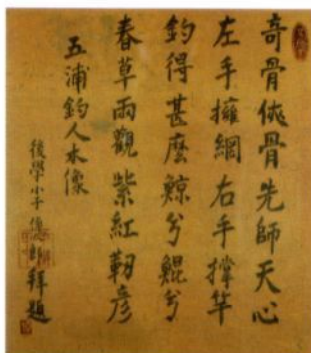 奇骨俠骨先師天心
左手擁網右手撑竿
釣得甚麼鯨兮鯤兮
春草雨觀紫紅靭彦
五浦釣人木像
後學小子
拜題